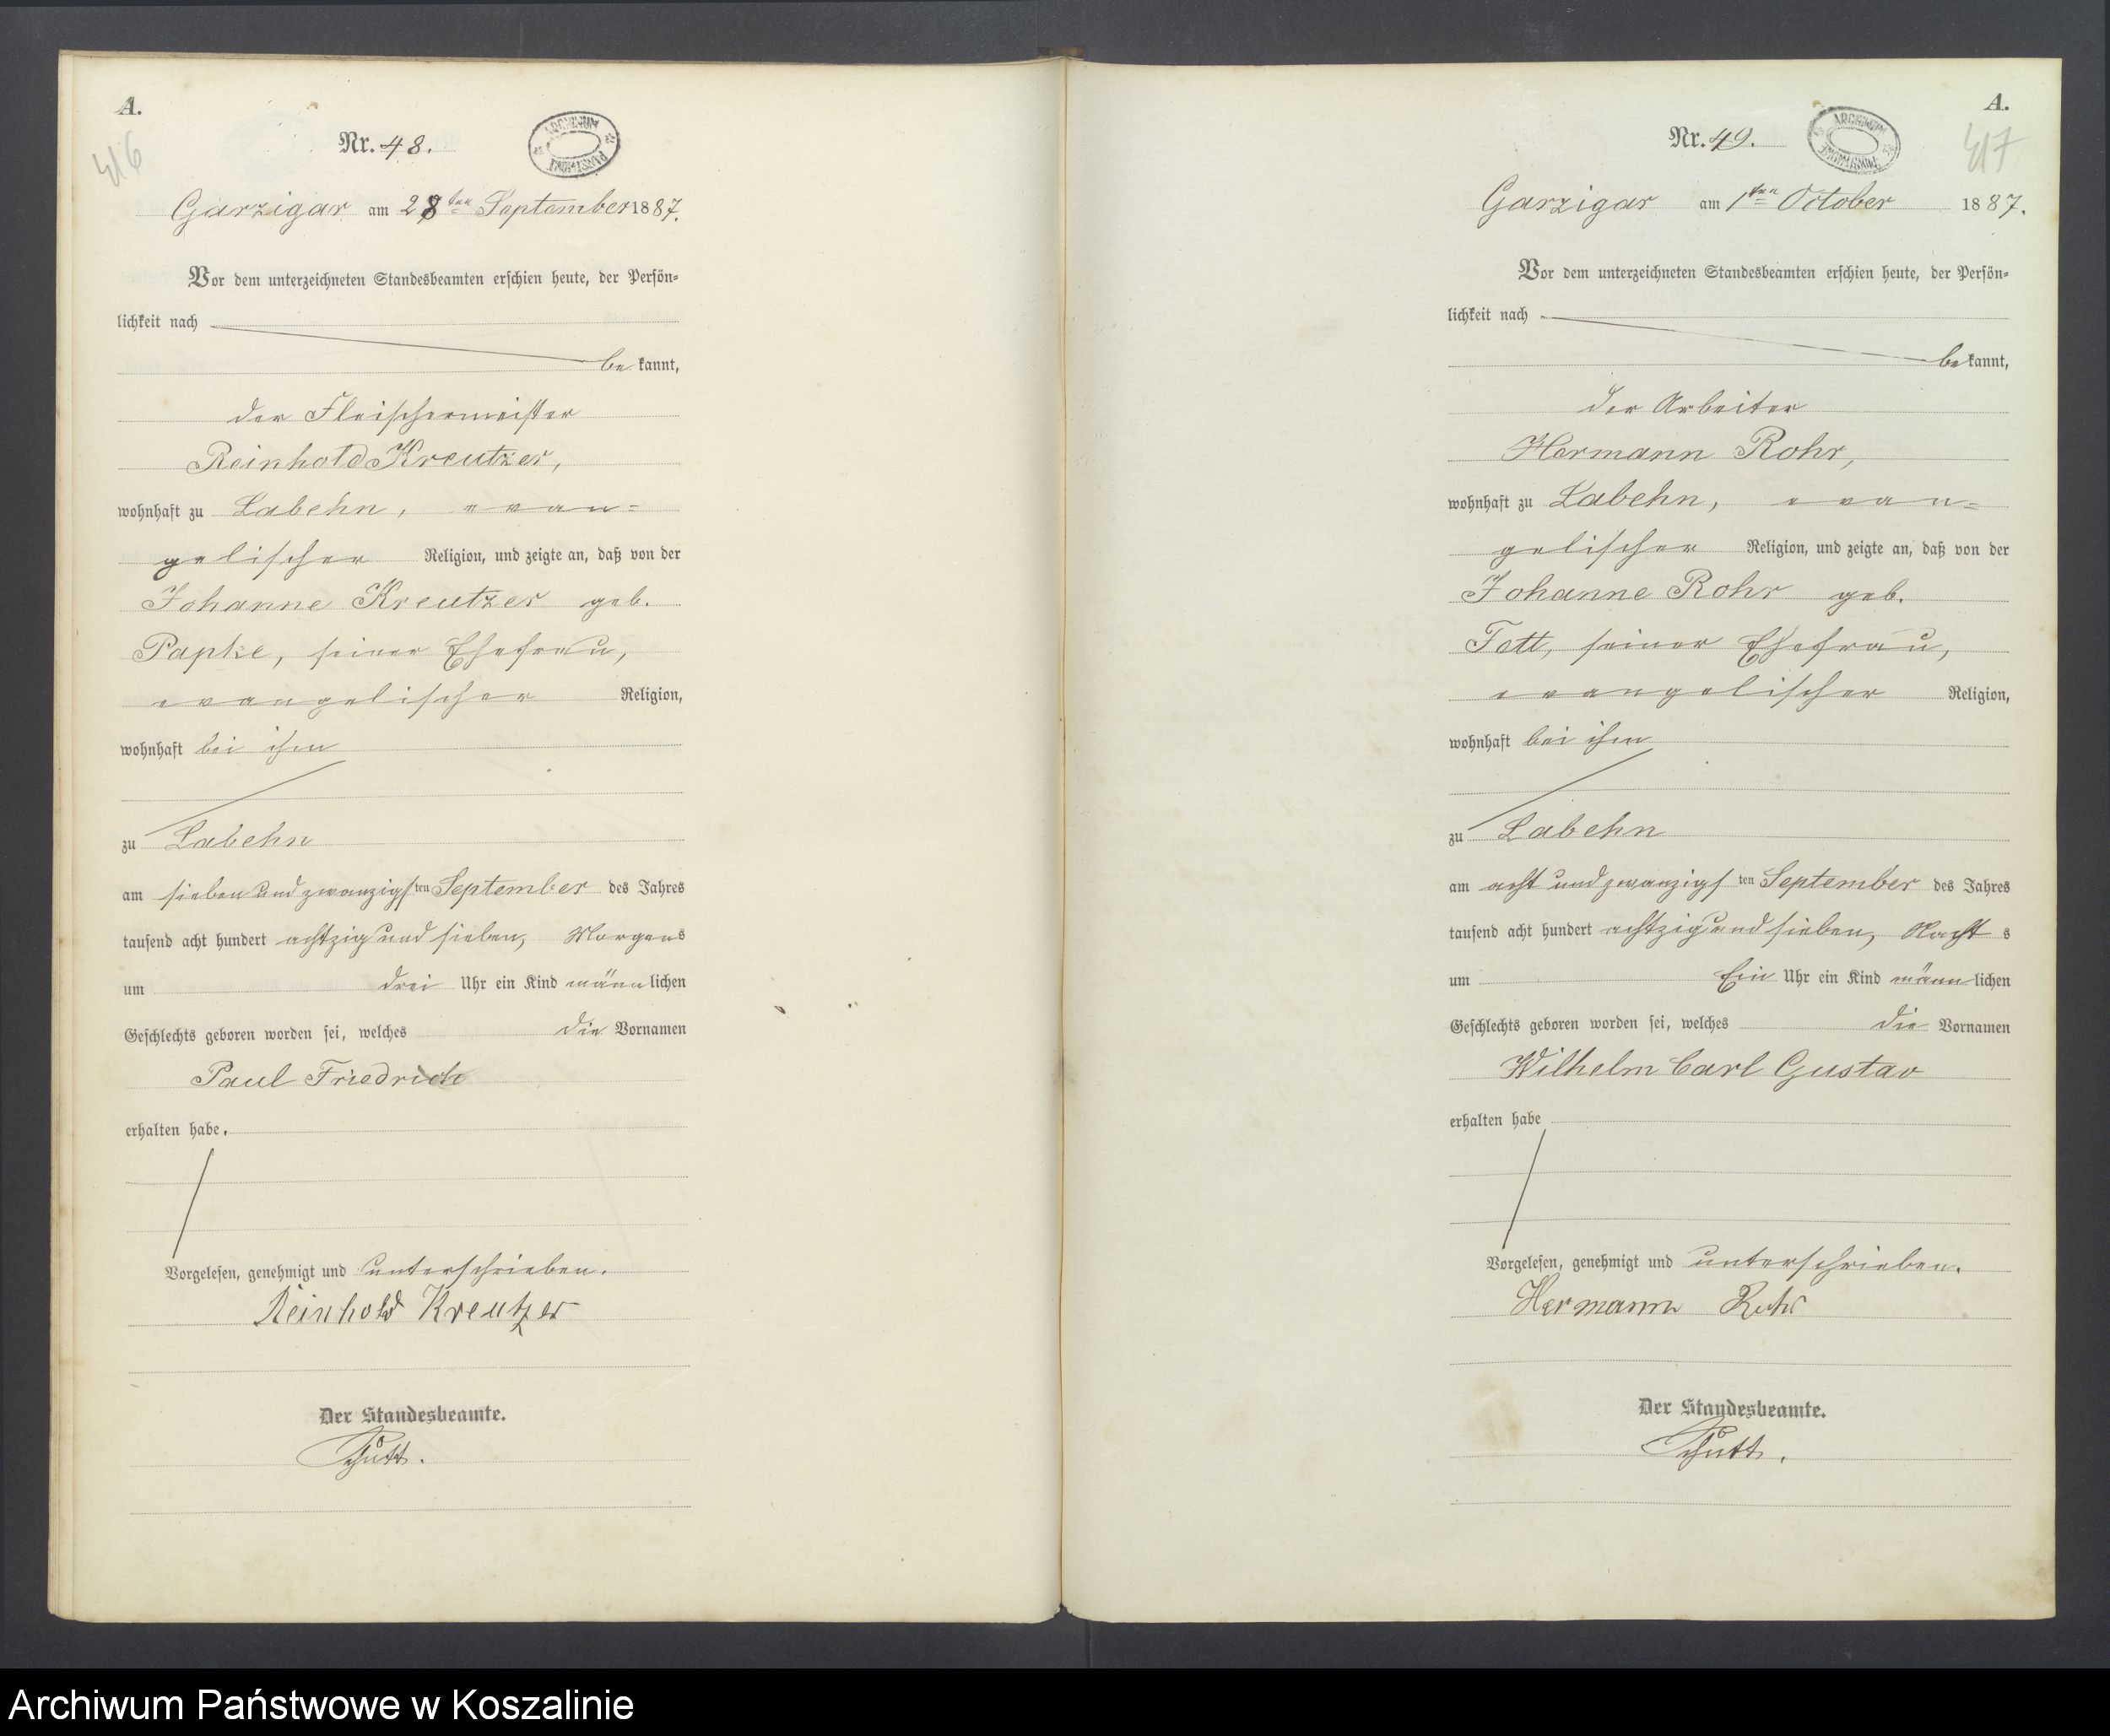 A.
416
Nr. 48.
ARCHIWUM PAŃSTWOWE
Garzigar am 28ten September 1887.
Vor dem unterzeichneten Standesbeamten erschien heute, der Persön-
lichkeit nach
be kannt,
der Fleischermeister
Reinhold Kreutzer,
wohnhaft zu Labehn, evan-
gelischer Religion, und zeigte an, daß von der
Johanne Kreutzer geb.
Papke, seiner Ehefrau,
evangelischer Religion,
wohnhaft bei ihm
zu Labehn
am sieben und zwanzigsten September des Jahres
tausend acht hundert achtzig und sieben, Morgens
um drei Uhr ein Kind männlichen
Geschlechts geboren worden sei, welches die Vornamen
Paul Friedrich
erhalten habe.
Vorgelesen, genehmigt und unterschrieben.
Reinhold Kreutzer
Der Standesbeamte.
Schütt.
A.
417
Nr. 49.
ARCHIWUM PAŃSTWOWE
Garzigar am 1ten October 1887.
Vor dem unterzeichneten Standesbeamten erschien heute, der Persön-
lichkeit nach
be kannt,
der Arbeiter
Hermann Rohr,
wohnhaft zu Labehn, evan-
gelischer Religion, und zeigte an, daß von der
Johanne Rohr geb.
Fett, seiner Ehefrau,
evangelischer Religion,
wohnhaft bei ihm
zu Labehn
am acht und zwanzigsten September des Jahres
tausend acht hundert achtzig und sieben, Nachts
um Ein Uhr ein Kind männlichen
Geschlechts geboren worden sei, welches die Vornamen
Wilhelm Carl Gustav
erhalten habe
Vorgelesen, genehmigt und unterschrieben.
Hermann Rohr
Der Standesbeamte.
Schütt.
Archiwum Państwowe w Koszalinie